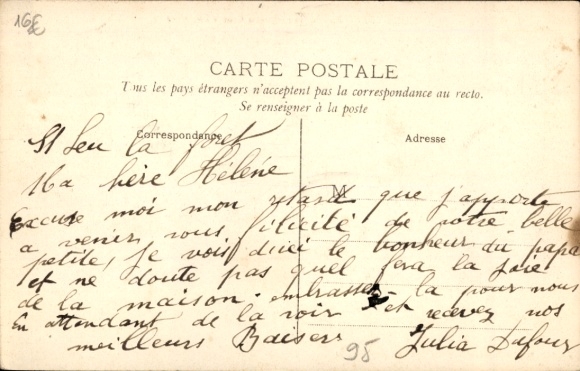 16€
CARTE POSTALE
Tous les pays étrangers n'acceptent pas la correspondance au recto.
Se renseigner à la poste
Correspondance
Adresse
St Leu la foret
Ma hère Hélène
Excuse moi mon retard que j'apporte
a venir vous filicité de votre belle
petite, je vois d'ici le bonheur du papa
et ne doute pas quel fera la joie
de la maison. embrassez la pour nous
En attendant de la voir et recevez nos
meilleurs Baisers Julia Dufour
95